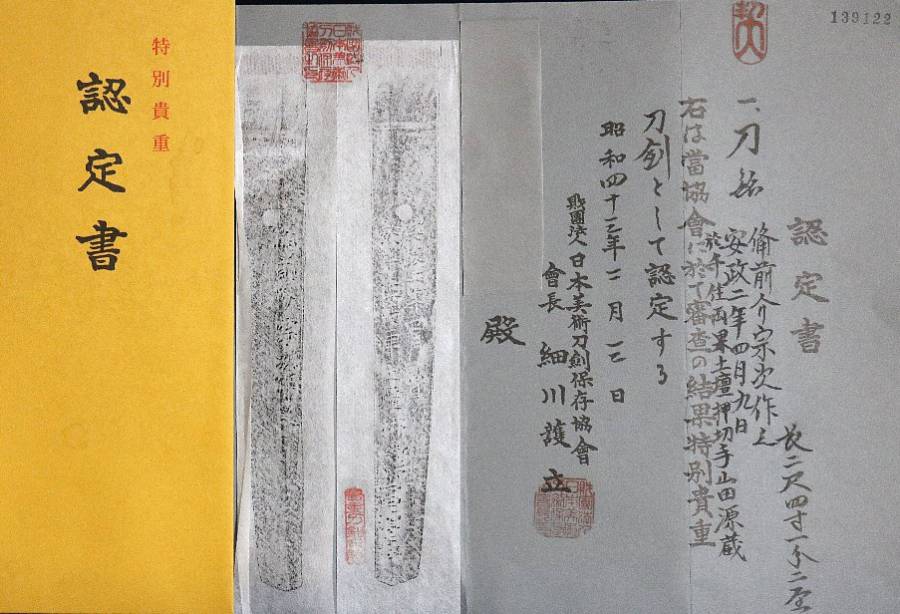 特別貴重
認定書
139122
認定書
一、刀 銘 備前介宗次作之 長二尺四寸一分二厘
安政二年四月九日
於千住両車土壇押切手山田源蔵
右は當協會に於て審査の結果特別貴重
刀剣として認定する
昭和四十年月日
財團法人日本美術刀劍保存協會
會長 細川護立
殿